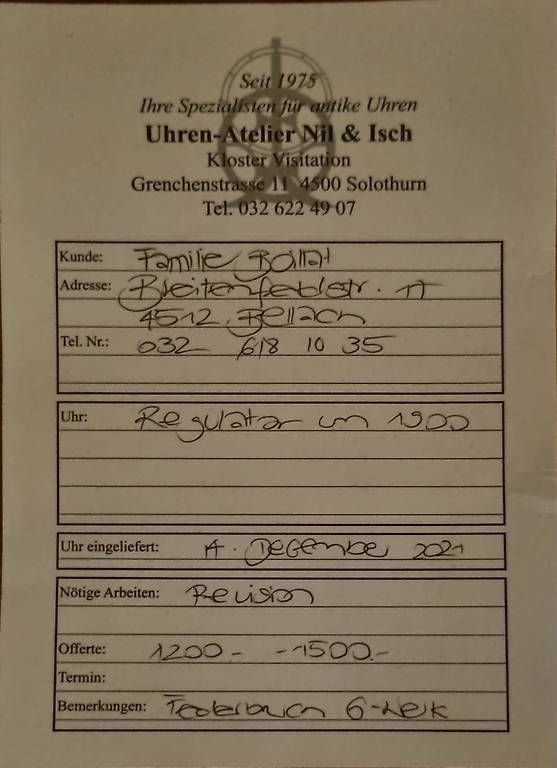 Seit 1975
Ihre Spezialisten für antike Uhren
Uhren-Atelier Nil & Isch
Kloster Visitation
Grenchenstrasse 11 4500 Solothurn
Tel. 032 622 49 07
Kunde: Familie
Adresse: Breitenfeldstr. 11
4512 Bellach
Tel. Nr.: 032 618 10 35
Uhr: Regulator um 1900
Uhr eingeliefert: 4. Dezember 2021
Nötige Arbeiten: Revision
Offerte: 1200.- -1500.-
Termin:
Bemerkungen: Federbruch G-Werk